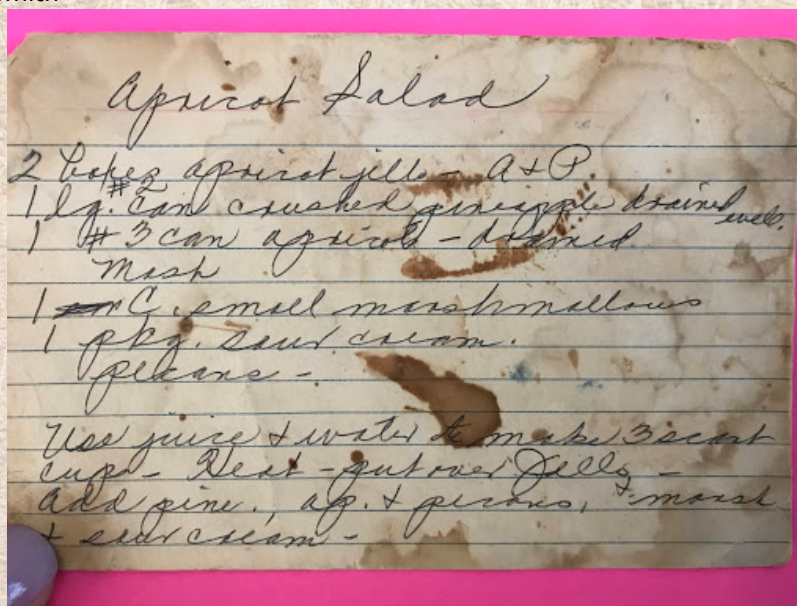 Apricot Salad
2 boxes apricot jello - A & P
1 lg. #2 can crushed pineapple drained well.
1 #3 can apricots - drained
Mash
1 C. small marshmallows
1 pkg. sour cream.
pecans -
Use juice & water to make 3 scant
cups - Heat - put over Jello -
Add pine., ap. & pecans, & marsh
& sour cream -